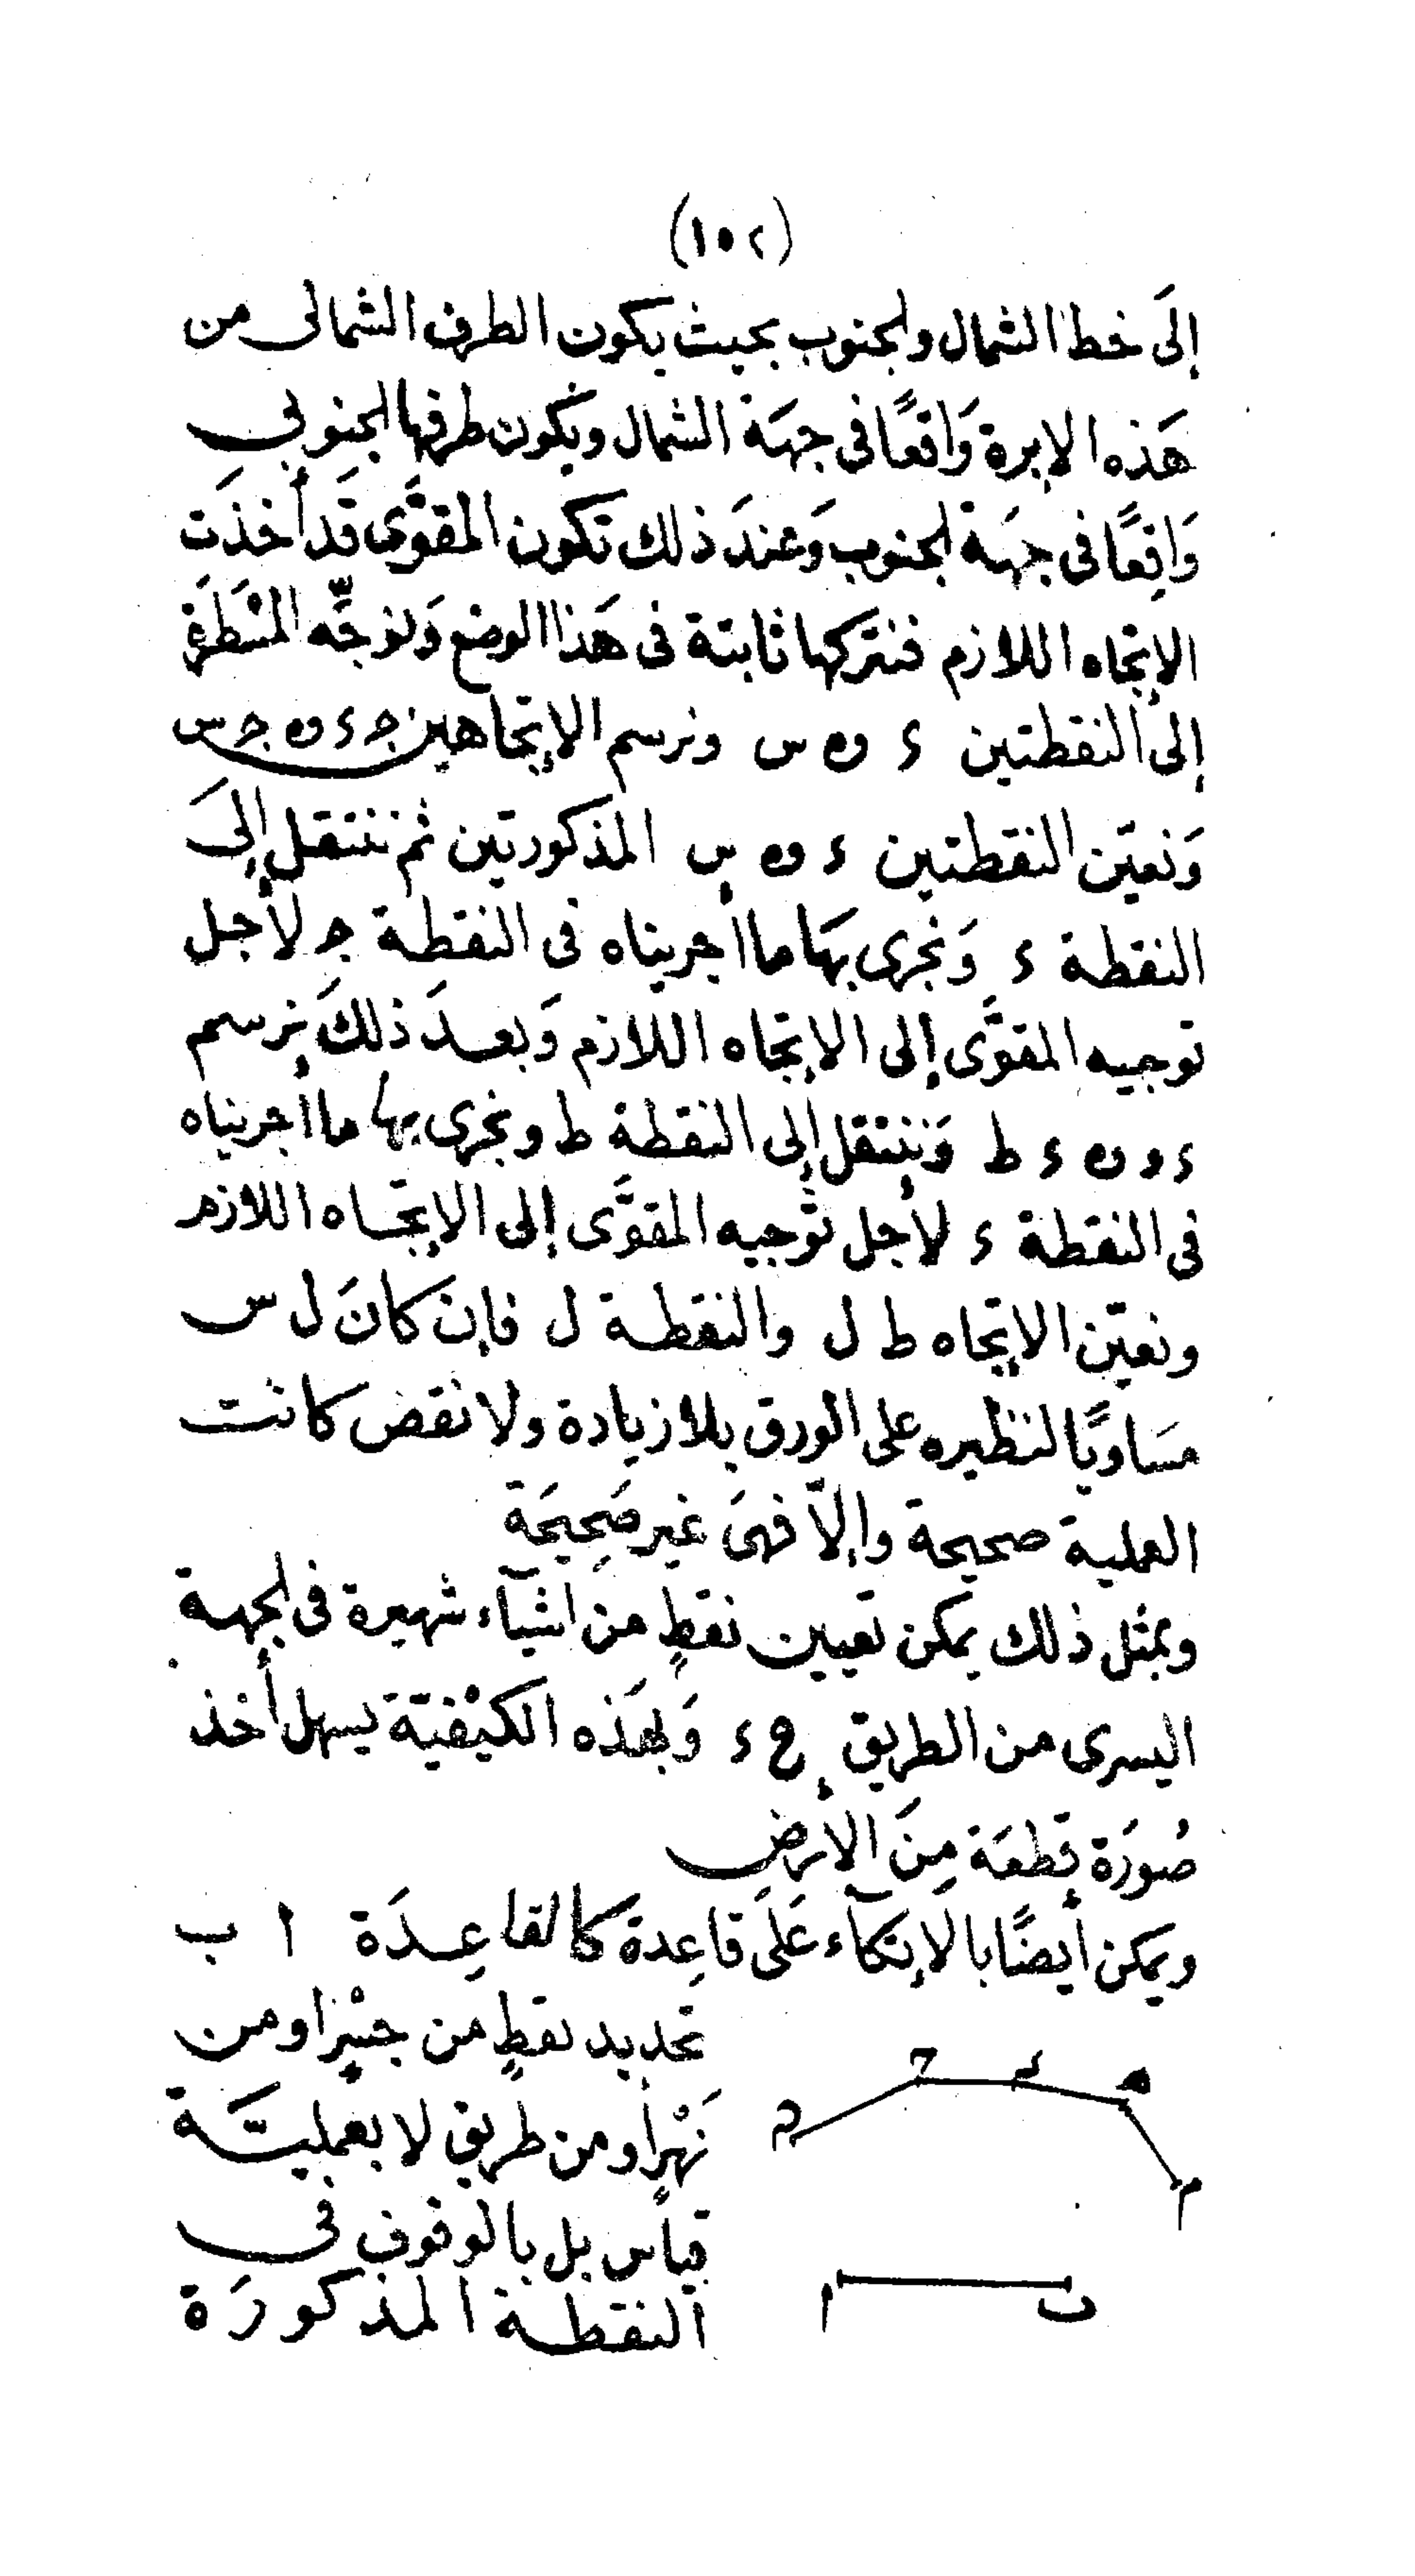 (١٥٢)
إلَى خط الشمال والجنوب بحيث يكون الطرف الشمالى من
هَذه الإبرة وَاقعًا فى جهَة الشمال ويكون طرفها الجنوبى
وَاقِعًا فى جهَة الجنوب وَعندَ ذلك تكون المقوَّى قَد أخذَت
الإتجاه اللازم فنتركها ثابتة فى هَذا الوضع وَنوجِّه المسْطَرَة
إلى النقطتين ء و ه س ونرسم الإتجاهين ج ء و ه ج س
وَنعيّن النقطتين ء و ه س المذكورتين ثم ننتقل إلىَ
النقطة ء وَنجرى بهَا ما اجريناه فى النقطة ج لأجل
توجيه المقوَّى إلى الإتجاه اللازم وَبعدَ ذلكَ نرسم
ء و ن ء ط وَننتقل إلى النقطة ط ونجرى بها ما أجريناه
فى النقطة ء لأجل توْجيه المقوَّى إلى الإتجاه اللازم
ونعيّن الإتجاه ط ل والنقطة ل فإن كانَ ل س
مسَاويًا لنظيره على الورق بلا زيادة ولا نقص كانت
العملية صحيحة وإلّا فهىَ غير صَحِيحَة
وبمثل ذلك يمكن تعيين نقطٍ من اشيآء شهيرة فى الجهة
اليسرى من الطريق ع ء وَبهَذه الكيْفيّة يسهل أخذ
صُورَة قِطعَة مِنَ الأرضِ
ويمكن أيضًا بالإتكآء عَلَى قاعِدة كالقاعِدَة ا ب
تحديد نقطٍ من جسْرٍ او من
نَهْرٍ أو من طريق لا بعمليَّة
قياس بل بالوقوف فى
النقطة المذكورَة
ح ء ه
م
ا ب